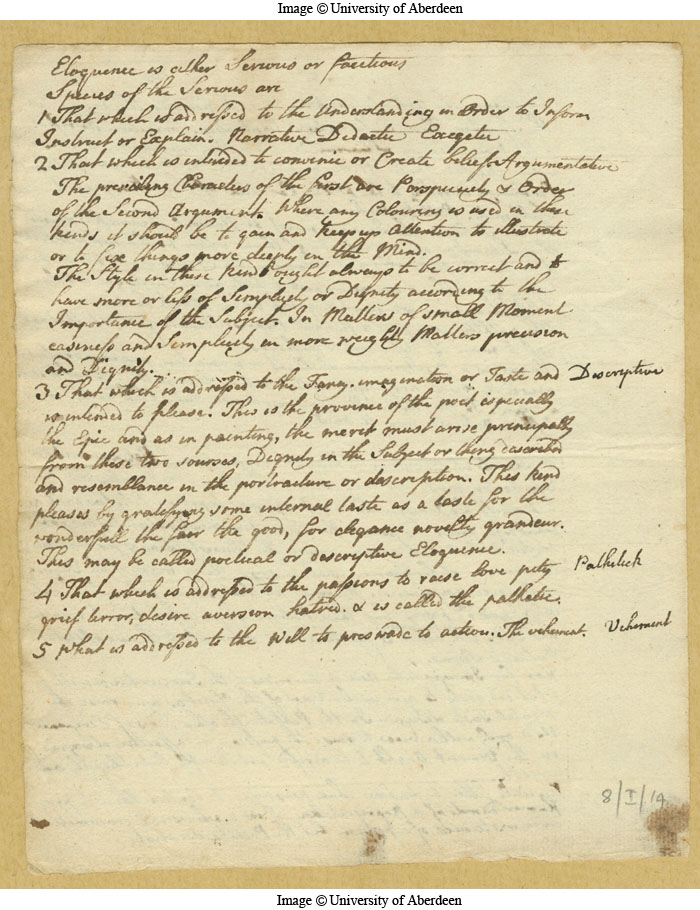 Image © University of Aberdeen
Eloquence is either Serious or facetious
Species of the Serious are
1 That which is addressed to the Understanding in Order to Inform
Instruct or Explain. Narrative Didactic Exegetic
2 That which is intended to convince or Create belief. Argumentative
The prevailing Characters of the first are Perspicuity & Order
of the Second Argument. Where any Colouring is used in these
kinds it should be to gain and keep up Attention to illustrate
or to fix things more deeply in the Mind.
The Style in these kinds ought always to be correct and to
have more or less of Simplicity or Dignity according to the
Importance of the Subject. In Matters of small Moment
easiness and Simplicity in more weighty Matters precision
and Dignity.
3 That which is addressed to the Fancy. imagination or Taste and Descriptive
is intended to please. This is the province of the poet especially
the Epic and as in painting, the merit must arise principally
from these two sourses, Dignity in the Subject or thing described
and resemblance in the portracture or description. This kind
pleases by gratifying some internal taste as a taste for the
wonderfull the fair the good, for elegance novelty grandeur.
This may be called poetical or descriptive Eloquence.
4 That which is addressed to the passions to raise love pity Pathetick
grief terror, desire aversion hatred. & is called the pathetic.
5 What is addressed to the Will to preswade to action. The vehement. Vehement
8/I/14
Image © University of Aberdeen